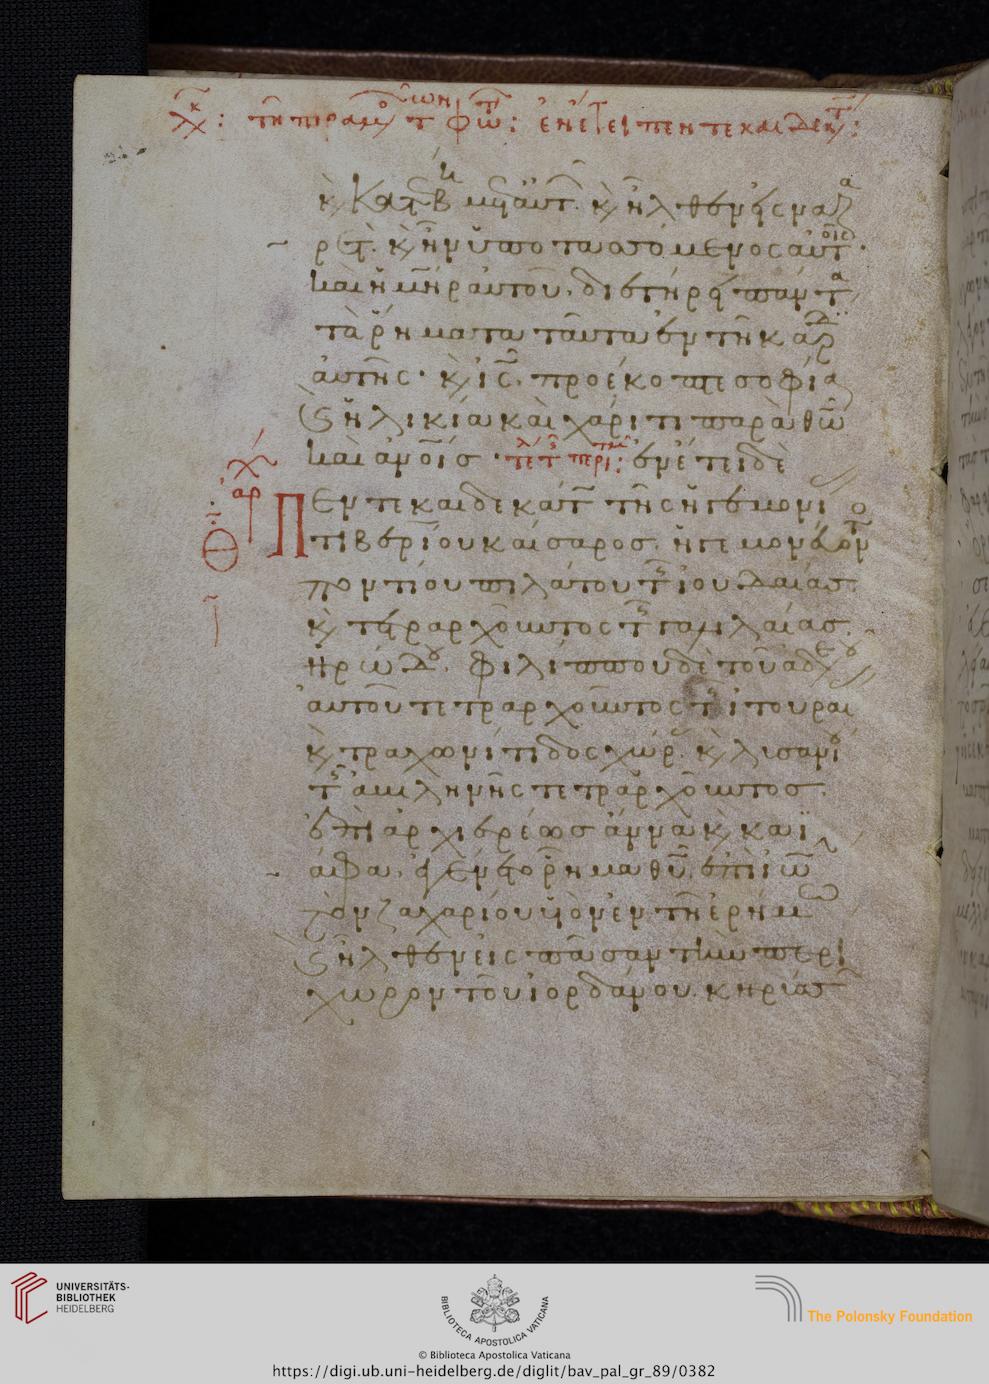 κ(αὶ) κατέβη μετ' αὐτ(ῶν) κ(αὶ) ἦλθεν εἰς ναζα
ρέτ. κ(αὶ) ἦν ὑποτασσόμενος αὐτοῖς·
καὶ ἡ μήρ αὐτοῦ διετήρει πάντα
τὰ ῥήματα ταῦτα ἐν τῆ καρδ
αὐτῆς· κ(αὶ) ις προέκοπτε σοφία
κ(αὶ) ἡλικία καὶ χάριτι παρὰ θῶ
καὶ ἀνοις· ἐν ἔτει δὲ
Πεντεκαιδεκάτ τῆς ἡγεμονί
τιβερίου καίσαρος. ἡγεμονεύοντ
ποντίου πιλάτου τῆς ἰουδαίας.
κ(αὶ) τετραρχοῦντος τῆς γαλιλαίας
ἡρώδου. φιλίππου δὲ τοῦ ἀδελφοῦ
αὐτοῦ τετραρχοῦντος τῆς ἰτουραι
κ(αὶ) τραχωνίτιδος χώρ. κ(αὶ) λυσανί
τῆς ἀβιληνῆς τετραρχοῦντος.
ἐπὶ ἀρχιερέως ἄννα κ(αὶ) καϊ
άφα. ἐγένετο ῥῆμα θυ ἐπὶ ἰω
τὸν ζαχαρίου υἱὸν ἐν τῆ ἐρήμω
κ(αὶ) ἦλθεν εἰς πᾶσαν τὴν περί
χωρον τοῦ ἰορδάνου. κηρύσσ
UNIVERSITÄTS-
BIBLIOTHEK
HEIDELBERG
BIBLIOTECA APOSTOLICA VATICANA
The Polonsky Foundation
© Biblioteca Apostolica Vaticana
https://digi.ub.uni-heidelberg.de/diglit/bav_pal_gr_89/0382